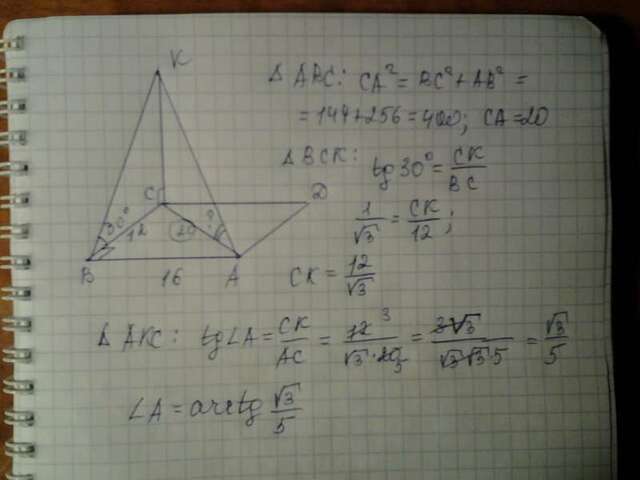 K
C
D
30°
12
20
?
B
16
A
Δ ABC: CA² = BC² + AB² =
= 144 + 256 = 400; CA = 20
Δ BCK: tg 30° = CK/BC
1/√3 = CK/12;
CK = 12/√3
Δ AKC: tg∠A = CK/AC = 12³/√3·20₅ = 3√3/√3·√3·5 = √3/5
∠A = arctg √3/5